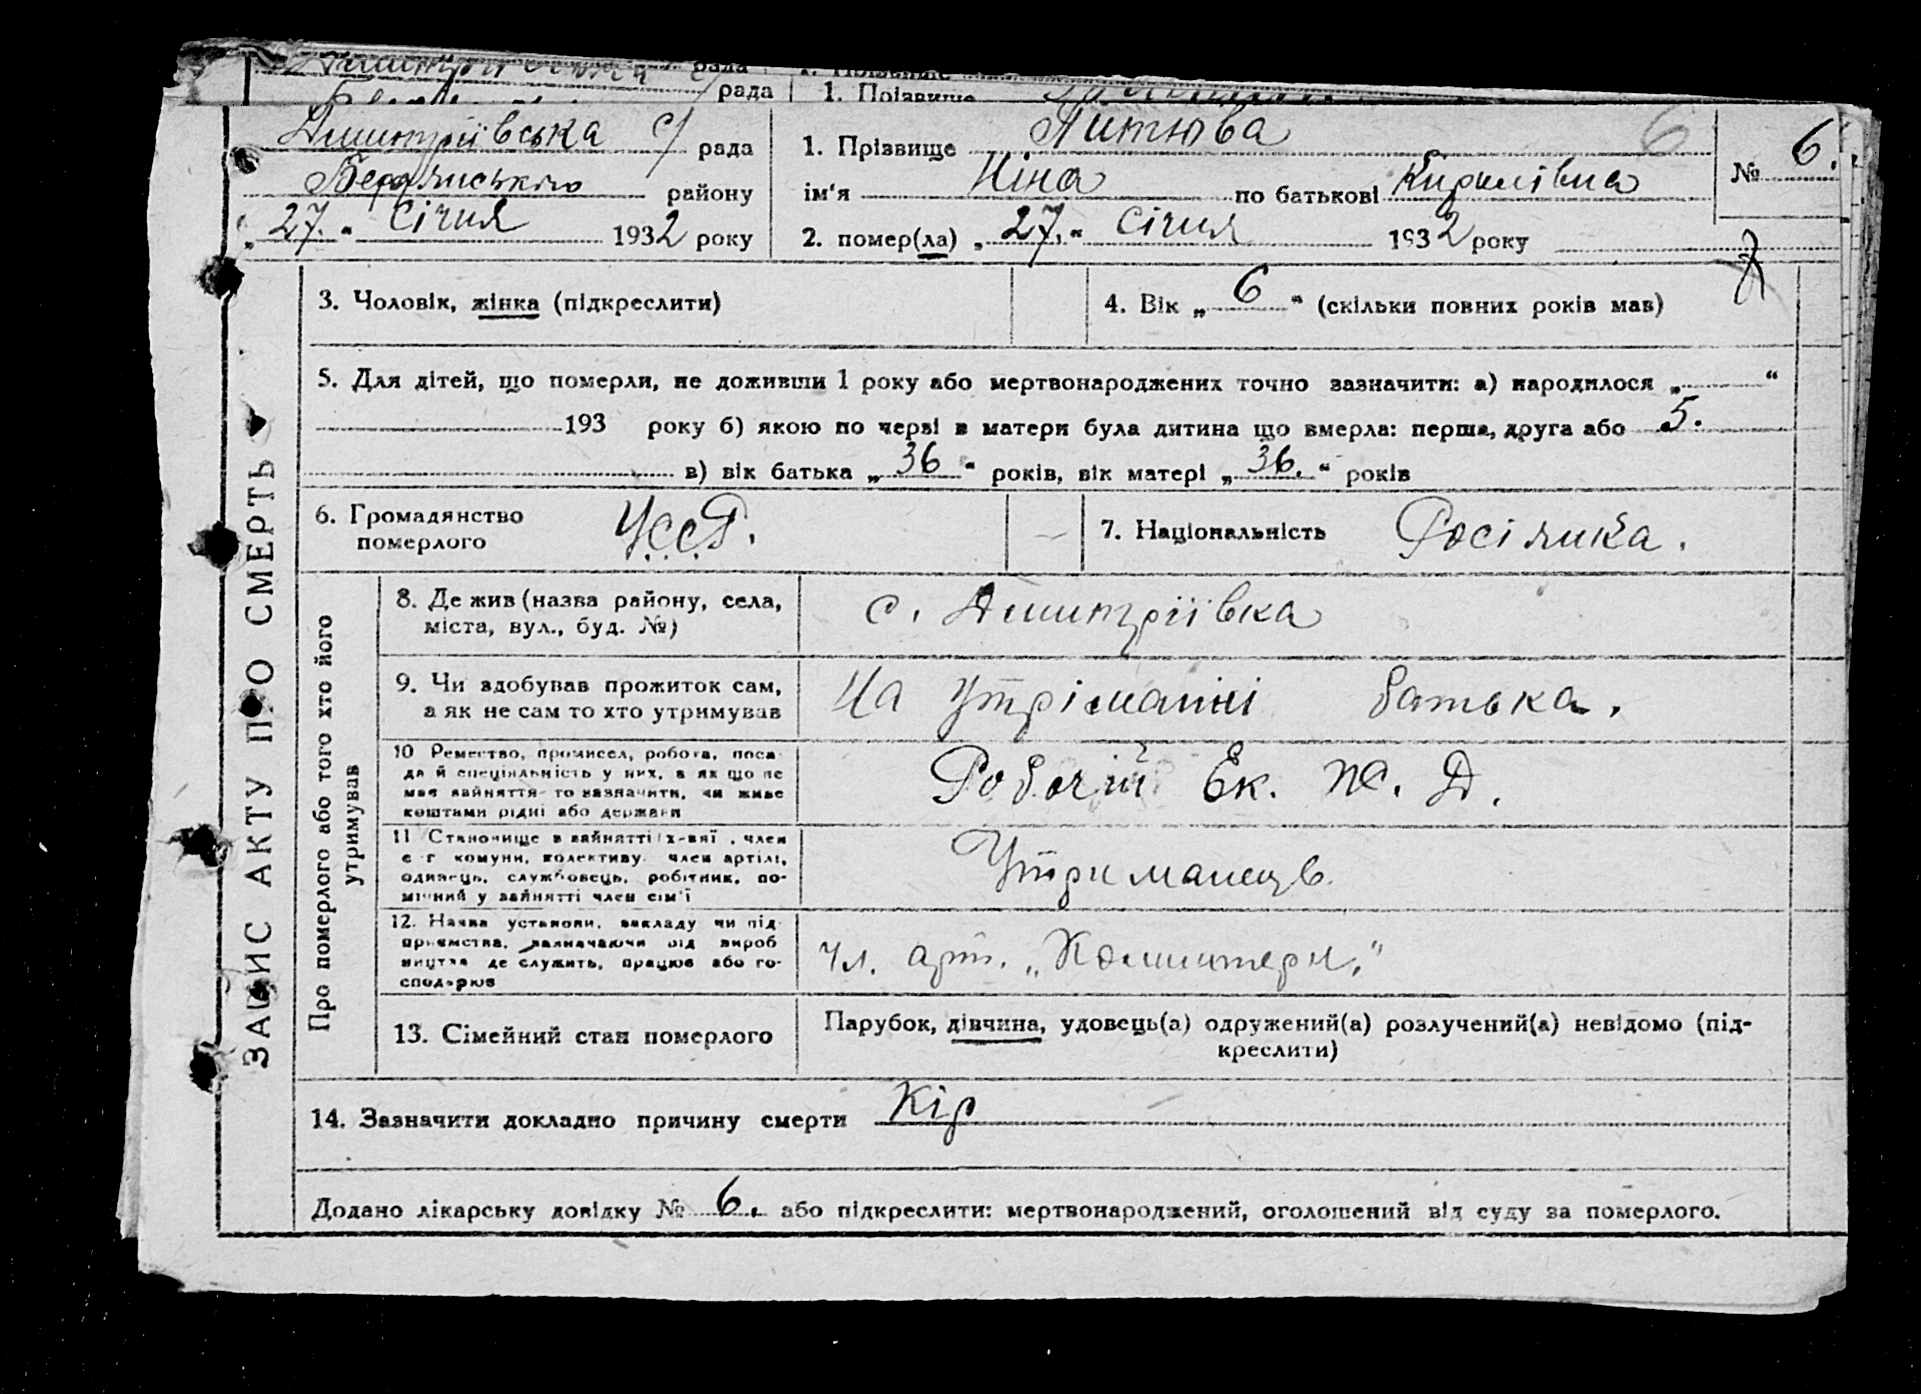 рада
рада 1. Прізвище
Дмитріївська с/ рада
Бердянського району
„27.“ Січня 1932 року
1. Прізвище Питюва 6
ім'я Ніна по батькові Кирилівна
№ 6.
2. помер(ла) „27.“ Січня 1932 року
3. Чоловік, жінка (підкреслити)
4. Вік „6“ (скільки повних років мав)
5. Для дітей, що померли, не доживши 1 року або мертвонароджених точно зазначити: а) народилося „ “
193 року б) якою по черві в матери була дитина що вмерла: перша, друга або 5.
в) вік батька „36“ років, вік матері „36.“ років
6. Громадянство
померлого
УССР.
7. Національність Росіянка.
ЗАПИС АКТУ ПРО СМЕРТЬ
Про померлого або того хто його
утримував
8. Де жив (назва району, села,
міста, вул., буд. №)
с. Дмитріївка
9. Чи здобував прожиток сам,
а як не сам то хто утримував
На утріманні батька.
10 Ремество, промисел, робота, поса-
да й специіяльність у них, а як що не
мав зайняття- то зазначити, чи живе
коштами рідні або держави
Робочій Ек. Ж. Д.
11 Становище в зайнятті х-вяї , член
с-г комуни, колективу член артілі,
одинець, службовець, робітник, по-
мічний у зайнятті член сім'ї
Утриманець
12. Назва установи, закладу чи під-
приємства, зазначаючи від вироб
ництва де служить, працює або го-
сподарює
Чл. арт. „Комінтерн.“
13. Сімейний стан померлого
Парубок, дівчина, удовець(а) одружений(а) розлучений(а) невідомо (під-
креслити)
14. Зазначити докладно причину смерти Кір
Додано лікарську довідку № 6. або підкреслити: мертвонароджений, оголошений від суду за померлого.